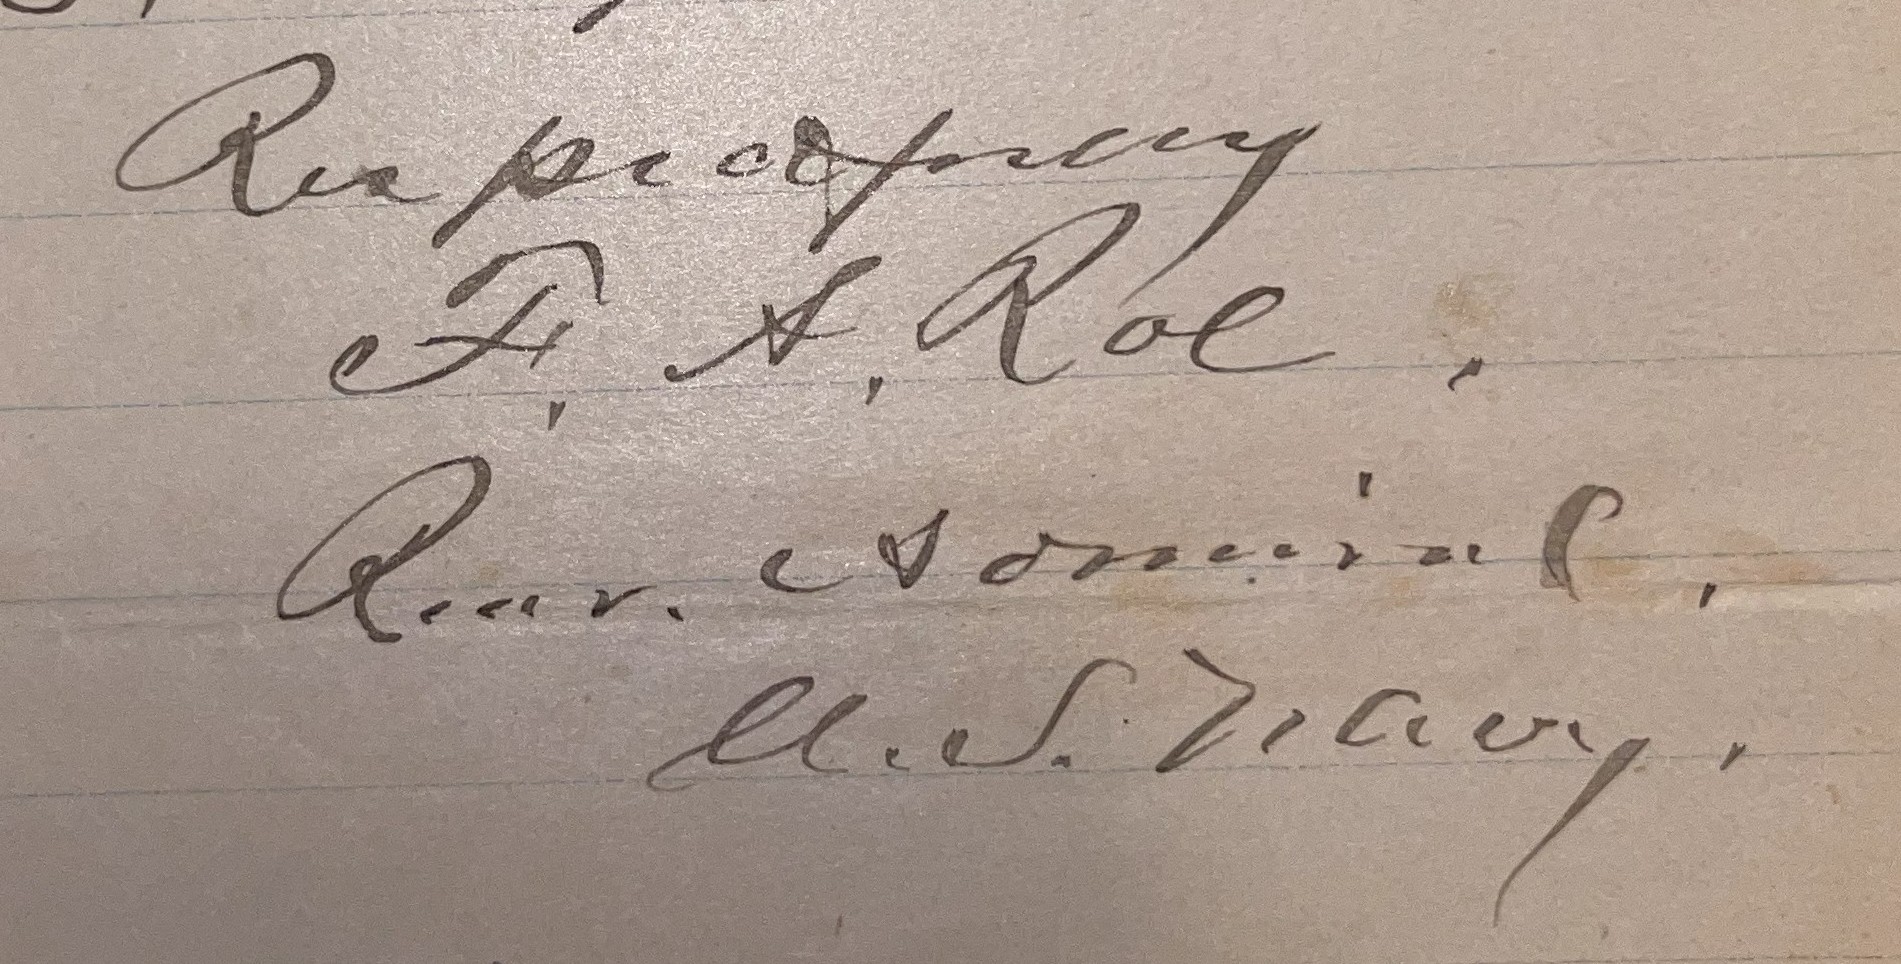 Respectfully
F. A. Roe.
Rear. Admiral,
U.S. Navy.